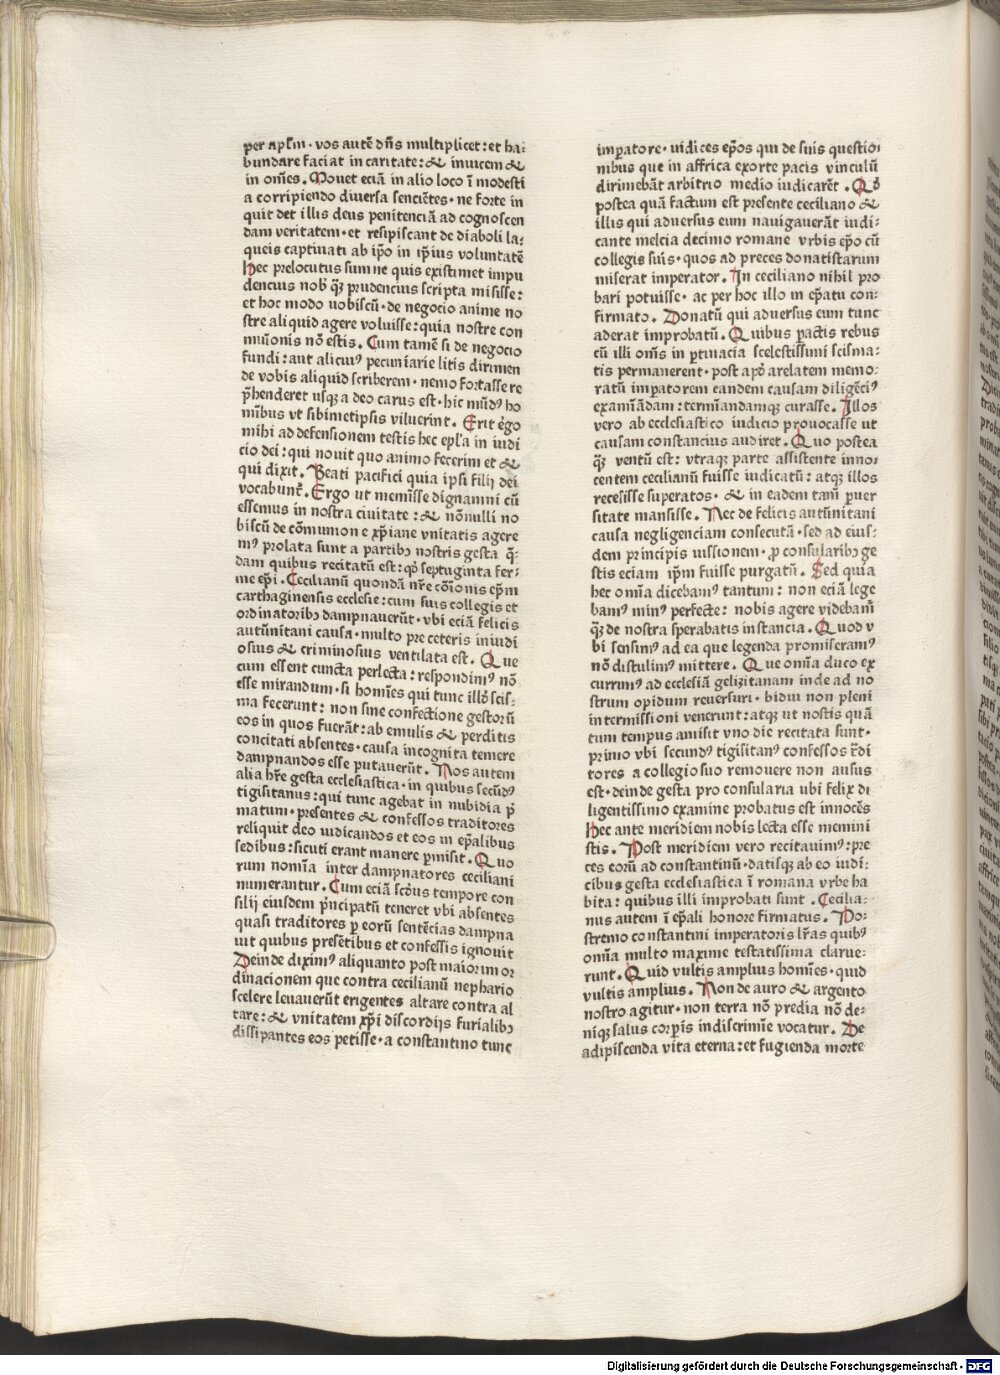 per apl̄m · vos autē dn̄s multiplicet : et ha:
bundare faciat in caritate : & inuicem &
in om̄es . Mouet eciā in alio loco ī modesti
a corripiendo diuersa senciētes · ne forte in
quit det illis deus penitenciā ad cognoscen
dam veritatem · et resipiscant de diaboli la:
queis captiuati ab ip̄o in ip̄ius voluntatē
Hec prelocutus sum ne quis existimet impu
dencius nob̾ q̄ꝫ prudencius scripta misisse :
et hoc modo uobiscū · de negocio anime no
stre aliquid agere voluisse : quia nostre con
mūionis nō estis . Cum tamē si de negocio
fundi : aut alicuiꝰ pecuniarie litis dirimen
de vobis aliquid scriberem · nemo fortasse re
p̄henderet usqꝫ a deo carus est · hic mūdꝰ ho
mībus vt sibimetipsis viluerint . Erit ēgo
mihi ad defensionem testis hec epl̄a in iudi
cio dei : qui nouit quo animo fecerim et &
qui dixit . Beati pacifici quia ipsi filij dei
vocabunt᷑ . Ergo ut memīsse dignamini cū
essemus in nostra ciuitate : & nōnulli no
biscū de cōmunione xp̄iane vnitatis agere
mꝰ prolata sunt a partibꝫ nostris gesta q̄:
dam quibus recitatū est : qꝺ septuginta fer:
me ep̄i . Cecilianū quondā nr̄e cōionis ep̄m
carthaginensis ecclesie : cum suis collegis et
ordinatoribꝫ dampnauerūt · vbi eciā felicis
autūnitani causa · multo pre ceteris iniudi
osius & criminosius ventilata est . Que
cum essent cuncta perlecta : respondimꝰ nō
esse mirandum · si homīes qui tunc illꝺ scis:
ma fecerunt : non sine confectione gestorū
eos in quos fuerāt : ab emulis & perditis
concitati absentes · causa incognita temere
dampnandos esse putauerūt . Nos autem
alia hr̄e gesta ecclesiastica · in quibus secūdꝰ
tigisitanus : qui tunc agebat in nubidia p̄
matum · presentes & confessos traditores
reliquit deo iudicandos et eos in ep̄alibus
sedibus : sicuti erant manere p̄misit . Quo
rum nomīa inter dampnatores ceciliani
numerantur . Cum eciā scd̄us tempore con
silij eiusdem p̄ncipatū teneret vbi absentes
quasi traditores ꝑ eorū sentēcias dampna
uit quibus presētibus et confessis ignouit
Deinde diximꝰ aliquanto post maiorim or
dīnacionem que contra cecilianū nephario
scelere leuauerūt erigentes altare contra al
tare : & vnitatem xp̄i discordijs furialibꝫ
dissipantes eos petisse · a constantino tunc
imp̄atore · iudices ep̄os qui de suis questio:
nibus que in affrica exorte pacis vinculū
dirimebāt arbitrio medio iudicarēt . Qꝺ
postea quā factum est presente ceciliano &
illis qui aduersus eum nauigauerāt iudi:
cante melcia decimo romane vrbis ep̄o cū
collegis suis · quos ad preces donatistarum
miserat imperator . In ceciliano nihil pro
bari potuisse · ac per hoc illo in ep̄atu con:
firmato . Donatū qui aduersus eum tunc
aderat improbatū . Quibus p̄actis rebus
cū illi om̄s in p̄tinacia scelestissimi scisma:
tis permanerent · post apꝺ arelatem memo:
ratū imp̄atorem eandem causam diligēciꝰ
examīādam : termīandamqꝫ curasse . Illos
vero ab ecclesiastico iudicio prouocasse ut
causam constancius audiret . Quo postea
q̄ꝫ ventū est : vtraqꝫ parte assistente inno:
centem cecilianū fuisse iudicatū : atqꝫ illos
recesisse superatos · & in eadem tam̄ ꝑuer
sitate mansisse . Nec de felicis autūnitani
causa negligenciam consecutā · sed ad eius:
dem principis iussionem · ꝓ consularibꝫ ge
stis eciam ip̄m fuisse purgatū . Sed quia
hec omīa dicebamꝰ tantum : non eciā lege
bamꝰ minꝰ perfecte : nobis agere videbam᷑
q̄ꝫ de nostra sperabatis instancia . Quod v
bi sensimꝰ ad ea que legenda promiseramꝰ
nō distulimꝰ mittere . Que omīa duco ex
currimꝰ ad ecclesiā gelizitanam inde ad no
strum opidum reuersuri · biduī non pleni
intermissioni venerunt : atqꝫ ut nostis quā
tum tempus amisit vno die recitata sunt ·
primo vbi secundꝰ tigisitanꝰ confessos t̄di
tores a collegio suo remouere non ausus
est · deinde gesta pro consularia ubi felix di
ligentissimo examine probatus est innocēs
Hec ante meridiem nobis lecta esse memini
stis . Post meridiem vero recitauimꝰ : pre
ces eorū ad constantinū · datisqꝫ ab eo iudi:
cibus gesta ecclesiastica ī romana vrbe ha
bita : quibus illi improbati sunt . Cecilia:
nus autem ī ep̄ali honore firmatus . Po:
stremo constantini imperatoris lr̄as quibꝰ
omīa multo maxime testatissima clarue:
runt . Quid vultis amplius homīes · quid
vultis amplius . Non de auro & argento
nostro agitur · non terra nō predia nō de:
niqꝫ salus corp̄is indiscrimīe vocatur . De
adipiscenda vita eterna : et fugienda morte
Digitalisierung gefördert durch die Deutsche Forschungsgemeinschaft - DFG